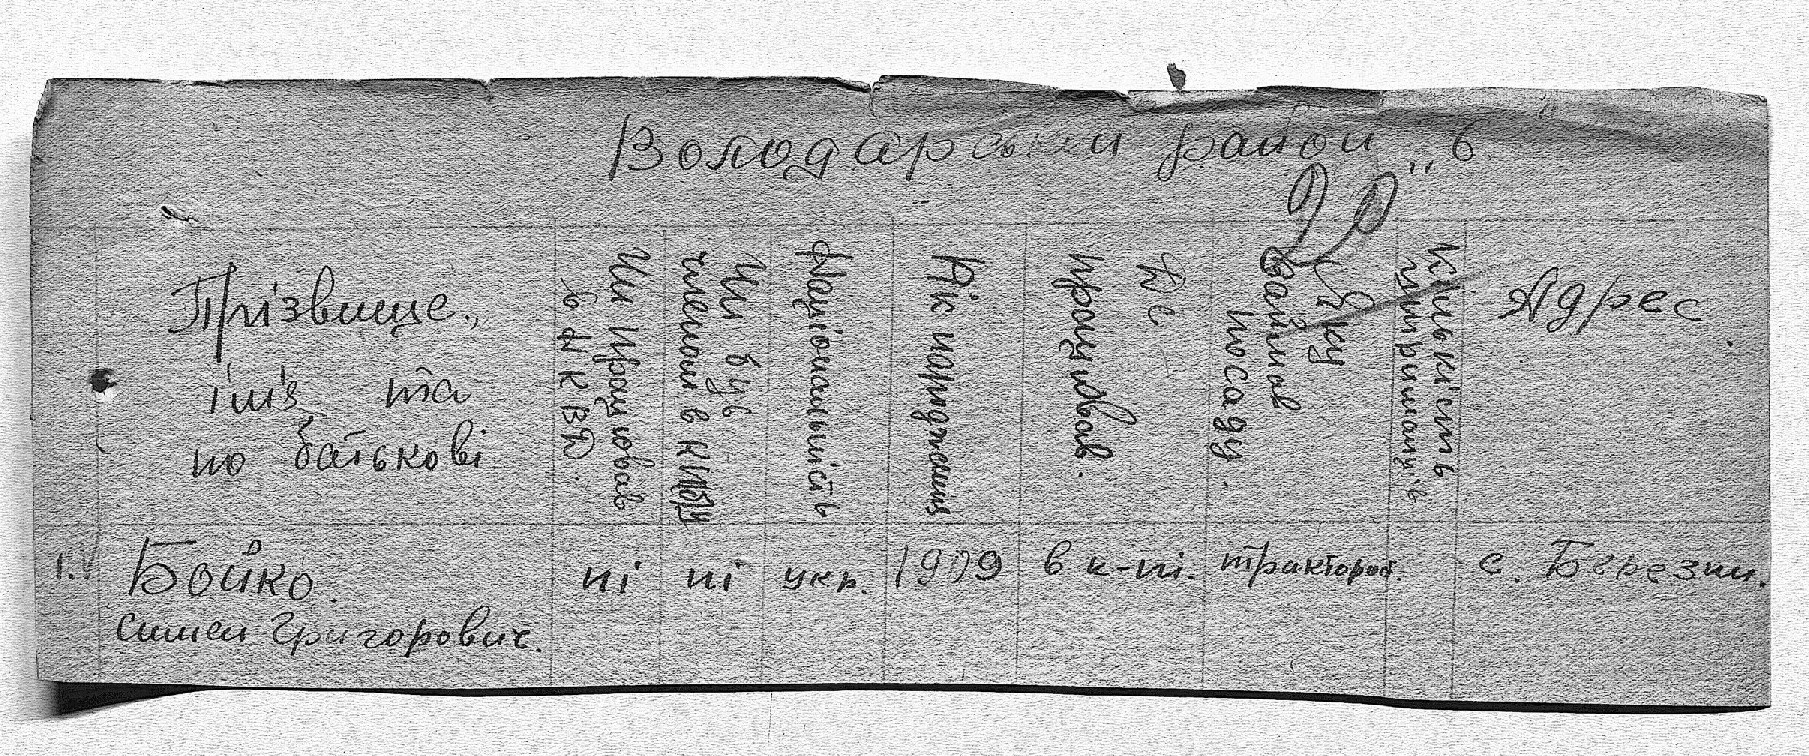 Володарський район „6.
Прізвище,
ім'я та
по батькові
Чи працював
в НКВД.
Чи був
членом в КП(б)У
Національність
Рік народження
Де
працював.
Яку
займав
посаду.
Кількість
утриманців
Адрес
1. Бойко. ні ні укр. 1909 в к-пі. тракторог. с. Березни.
Симен Григорович.